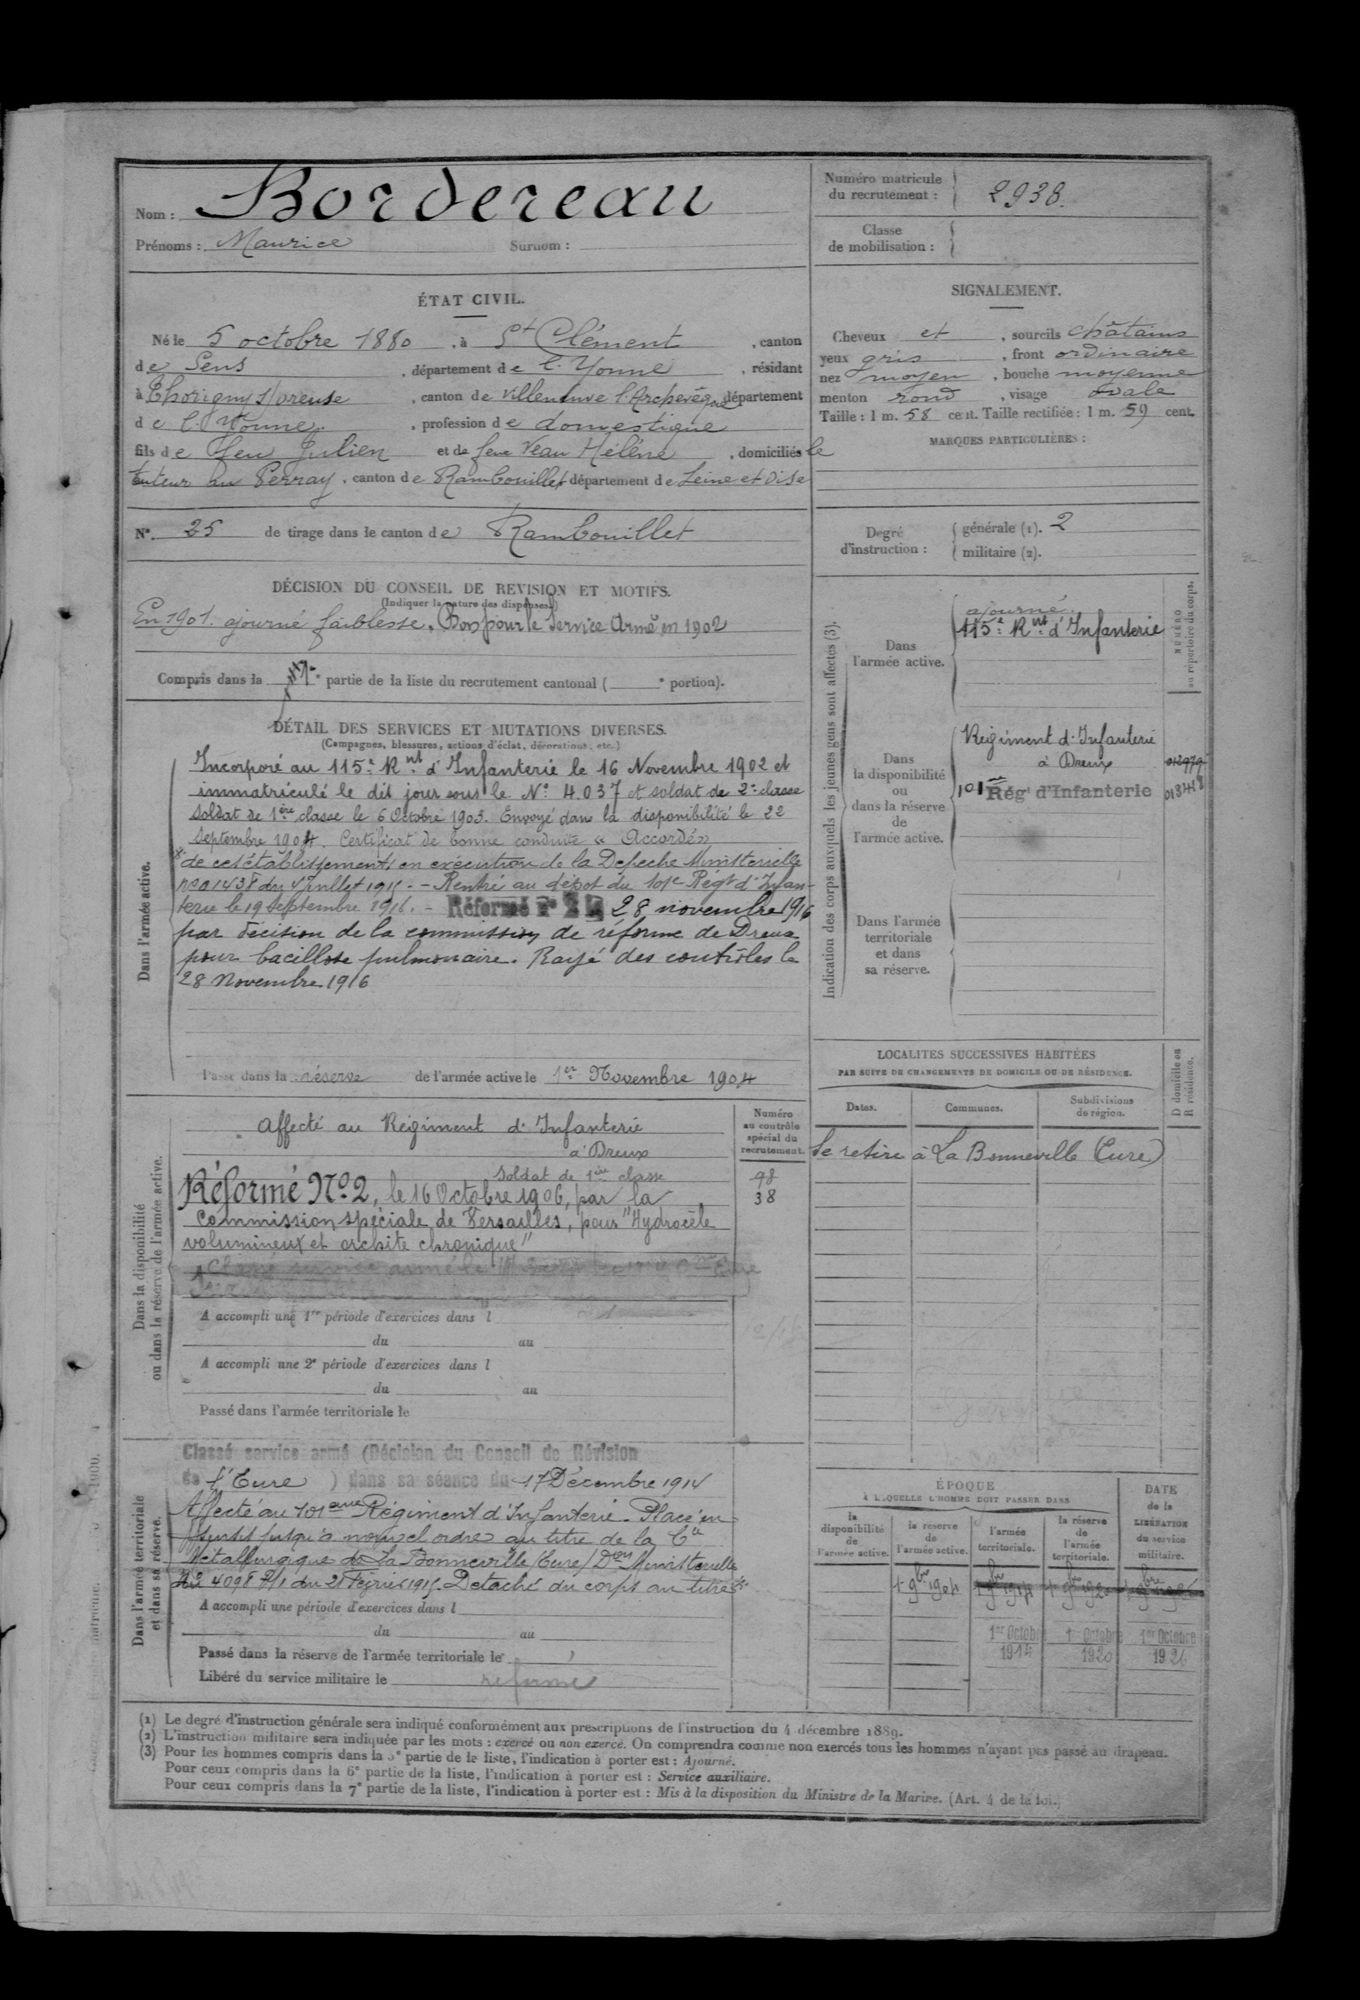 Nom : Bordereau
Prénoms : Maurice Surnom :
Numéro matricule du recrutement : 2938.
Classe de mobilisation :
ÉTAT CIVIL.
Né le 5 octobre 1880, à St Clément, canton
de Sens, département de l'Yonne, résidant
à Thorigny s/ Oreuse, canton de Villeneuve l'Archevêque département
de l'Yonne, profession de domestique
fils de feu Julien et de feue Veau Hélène, domiciliés le
tuteur au Perray, canton de Rambouillet département de Seine et Oise
N° 25 de tirage dans le canton de Rambouillet
SIGNALEMENT.
Cheveux et, sourcils châtains
yeux gris, front ordinaire
nez moyen, bouche moyenne
menton rond, visage ovale
Taille : 1 m. 58 cent. Taille rectifiée : 1 m. 59 cent.
MARQUES PARTICULIÈRES :
Degré d'instruction : générale (1). 2
militaire (2).
DÉCISION DU CONSEIL DE REVISION ET MOTIFS.
(Indiquer la nature des dispenses.)
En 1901. ajourné faiblesse. Bon pour le Service Armé en 1902
Compris dans la partie de la liste du recrutement cantonal ( portion).
DÉTAIL DES SERVICES ET MUTATIONS DIVERSES.
(Campagnes, blessures, actions d'éclat, décorations, etc.)
Dans l'armée active.
Incorporé au 115e Rnt d'Infanterie le 16 Novembre 1902 et
immatriculé le dit jour sous le N° 4.037 et soldat de 2e classe
Soldat de 1ère classe le 6 Octobre 1903. Envoyé dans la disponibilité le 22
septembre 1904. Certificat de bonne conduite « Accordé »
de cet établissement en exécution de la Depeche Ministerielle
du Juillet 1915. - Rentré au dépot du 101e Régt d'Infan-
terie le 19 septembre 1916. - Réformé n° 2 le 28 novembre 1916
par décision de la commission de réforme de Dreux
pour bacillose pulmonaire. Rayé des contrôles le
28 Novembre 1916
Passé dans la réserve de l'armée active le 1er Novembre 1904
Indication des corps auxquels les jeunes gens sont affectés (3).
NUMÉRO au répertoire du corps.
Dans l'armée active.
ajourné.
115e Rnt d'Infanterie
Dans la disponibilité ou dans la réserve de l'armée active.
Régiment d'Infanterie
à Dreux 012979
101e Rég' d'Infanterie 013418
Dans l'armée territoriale et dans sa réserve.
LOCALITES SUCCESSIVES HABITÉES
PAR SUITE DE CHANGEMENTS DE DOMICILE OU DE RÉSIDENCE.
D domicile ou R résidence.
Dates. Communes. Subdivisions de région.
Se retire à La Bonneville (Eure)
Dans la disponibilité ou dans la réserve de l'armée active.
Numéro au contrôle spécial du recrutement.
Affecté au Régiment d'Infanterie
à Dreux
Soldat de 1ère classe
98
38
Réformé N° 2, le 16 Octobre 1906, par la
Commission spéciale de Versailles, pour "Hydrocèle
volumineux et orchite chronique"
A accompli une 1re période d'exercices dans l
du au
A accompli une 2e période d'exercices dans l
du au
Passé dans l'armée territoriale le
Dans l'armée territoriale et dans sa réserve.
Classé service armé (Décision du Conseil de Révision
de l'Eure ) dans sa séance du 17 Décembre 1914
Affecté au 101ème Régiment d'Infanterie. Placé en
sursis jusqu'à nouvel ordre au titre de la Cie
Métallurgique de La Bonneville (Eure) Don Ministerielle
N° 4098 du 21 Février 1915. Detaché du corps au titre
A accompli une période d'exercices dans l
du au
Passé dans la réserve de l'armée territoriale le
Libéré du service militaire le réformé
ÉPOQUE
A LAQUELLE L'HOMME DOIT PASSER DANS
DATE de la LIBÉRATION du service militaire.
la disponibilité de l'armée active. la réserve de l'armée active. l'armée territoriale. la réserve de l'armée territoriale.
1 9bre 1904 1 9bre 1914 1 9bre 1920
1er Octobre 1914 1er Octobre 1920 1er Octobre 1926
(1) Le degré d'instruction générale sera indiqué conformément aux prescriptions de l'instruction du 4 décembre 1889.
(2) L'instruction militaire sera indiquée par les mots : exercé ou non exercé. On comprendra comme non exercés tous les hommes n'ayant pas passé au drapeau.
(3) Pour les hommes compris dans la 5e partie de la liste, l'indication à porter est : Ajourné.
Pour ceux compris dans la 6e partie de la liste, l'indication à porter est : Service auxiliaire.
Pour ceux compris dans la 7e partie de la liste, l'indication à porter est : Mis à la disposition du Ministre de la Marine. (Art. 4 de la loi.)